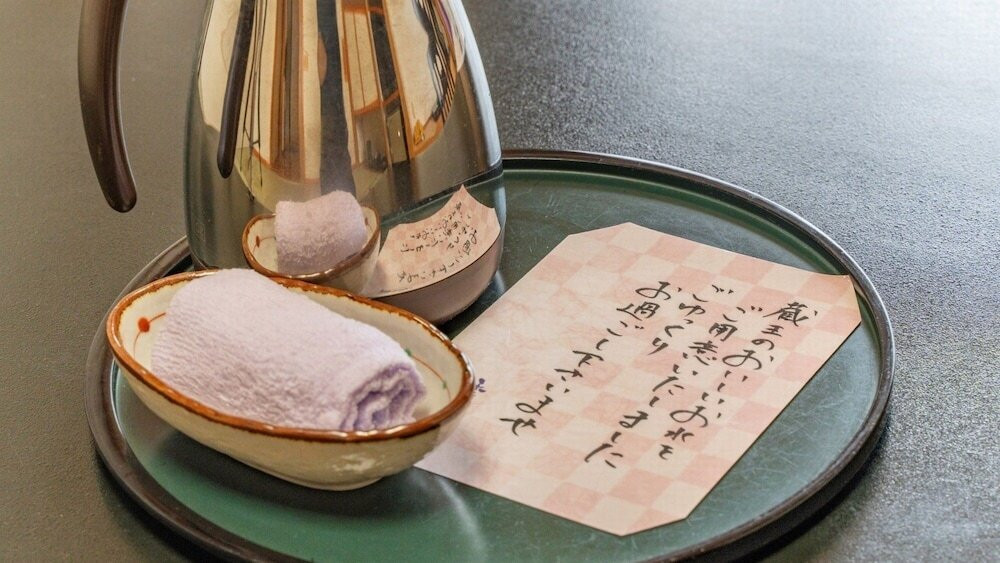 蔵王のおいしいお水を
ご用意いたしました
ごゆっくり
お過ごし下さいませ